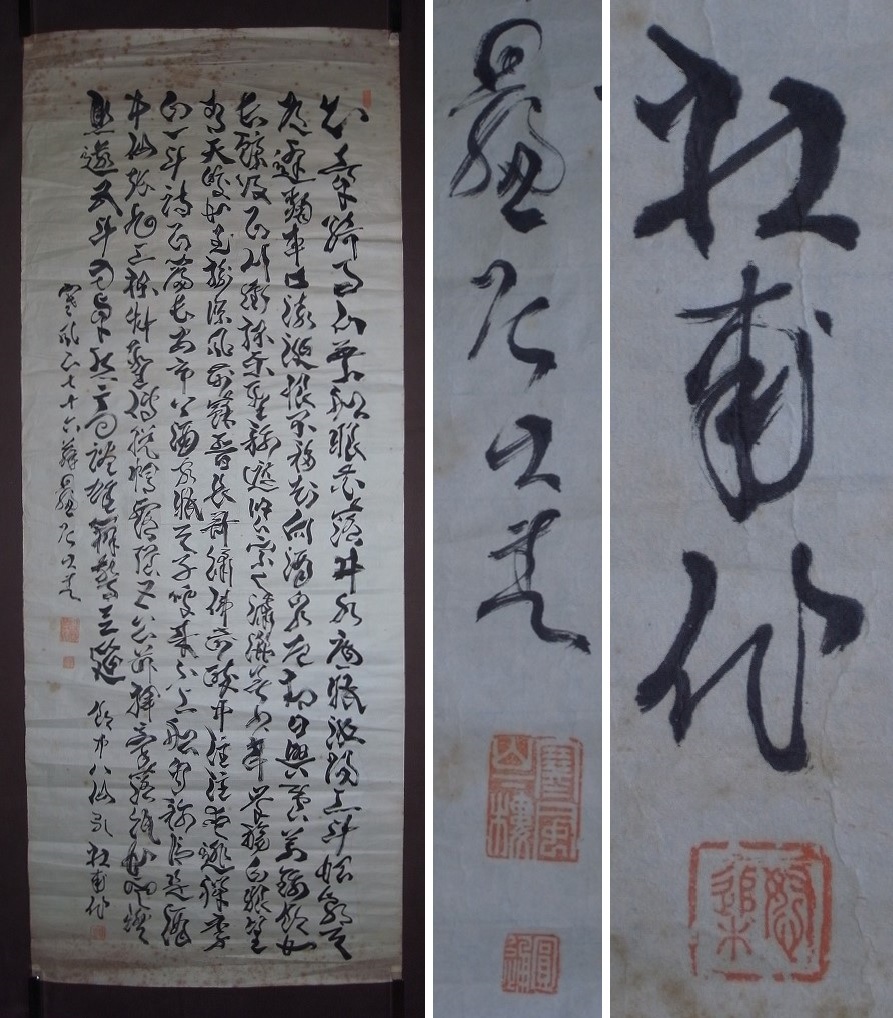 知章騎馬似乘船眼花落井水底眠汝陽三斗始朝天
道逢麴車口流涎恨不移封向酒泉左相日興費萬錢飲如
長鯨吸百川銜杯樂聖稱避賢宗之瀟灑美少年舉觴白眼望
青天皎如玉樹臨風前蘇晉長齋繡佛前醉中往往愛逃禪李
白一斗詩百篇長安市上酒家眠天子呼來不上船自稱臣是酒
中仙張旭三杯草聖傳脫帽露頂王公前揮毫落紙如雲煙
焦遂五斗方卓然高談雄辯驚四筵 飲中八仙歌 杜甫作
七十六
杜甫作